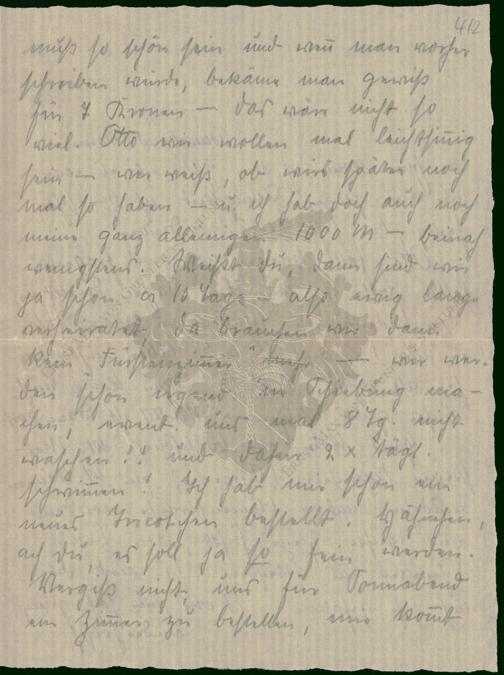 412
muß so schön sein und wenn man vorher
schreiben würde, bekäme man gewiß
für 7 Kronen – das wäre nicht so
viel. Otto wir wollen mal leichtsinnig
sein – wer weiß, ob wirs später noch
mal so haben – u. ich hab doch auch noch
meine ganz alleinigen 1000 M – beinah
wenigstens. Weißt du, dann sind wir
ja schon ca 10 Tage – also ewig lange
verheiratet, da brauchen wir dann
kein "Fürstenzimmer" mehr – wir wer-
den schon irgend ne Schiebung ma-
chen, event. uns mal 8 Tg. nicht
waschen!! und dafür 2 x tägl.
schwimmen! Ich hab mir schon ein
neues Tricotchen bestellt. Hähnchen,
ach du, es soll ja so fein werden.
Vergiß nicht, uns für Sonnabend
ein Zimmer zu bestellen, mir kommt